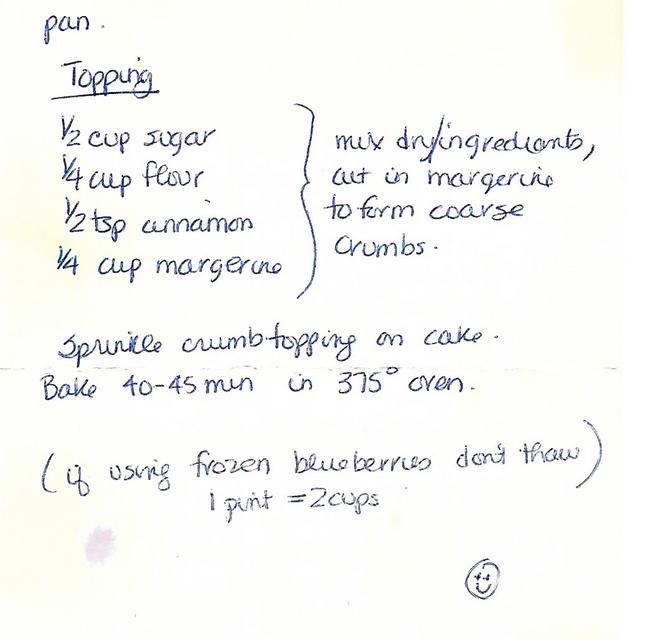 pan.
Topping
1/2 cup sugar
1/4 cup flour
1/2 tsp cinnamon
1/4 cup margerine
mix dry ingredients,
cut in margerine
to form coarse
crumbs.
Sprinkle crumb topping on cake.
Bake 40-45 min in 375° oven.
(if using frozen blueberries don't thaw)
1 pint = 2 cups